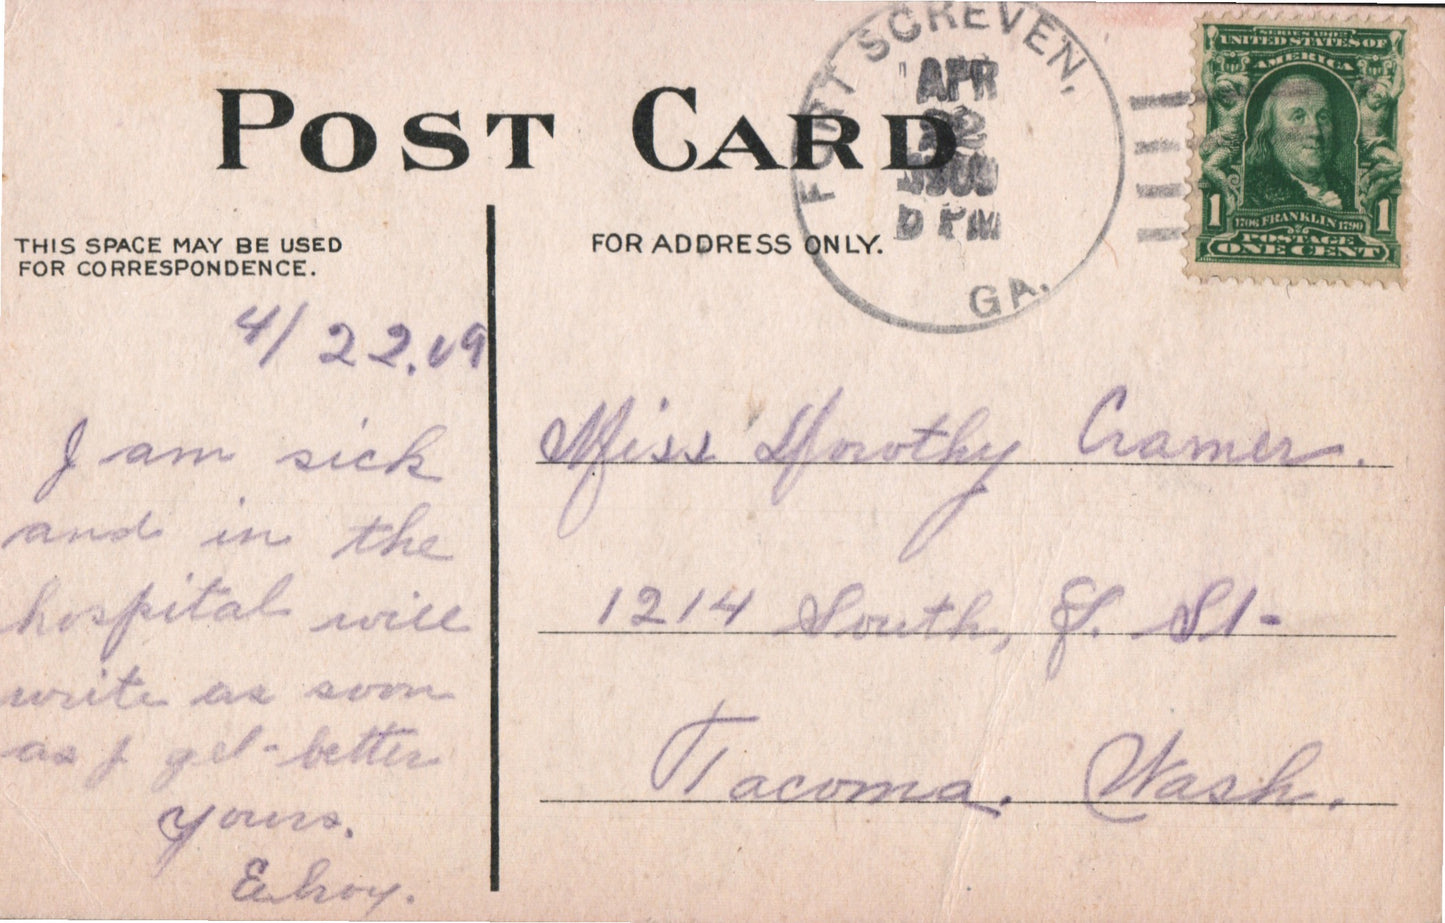 POST CARD
THIS SPACE MAY BE USED
FOR CORRESPONDENCE.
FOR ADDRESS ONLY.
FORT SCREVEN,
APR
22
1909
PM
GA.
SERIES 1902
UNITED STATES OF
AMERICA
1 1
1706 FRANKLIN 1790
POSTAGE
ONE CENT
4/22.09
I am sick
and in the
hospital will
write as soon
as I get better
Yours.
Miss Dorothy Cramer.
1214 South, J. St-
Tacoma. Wash.